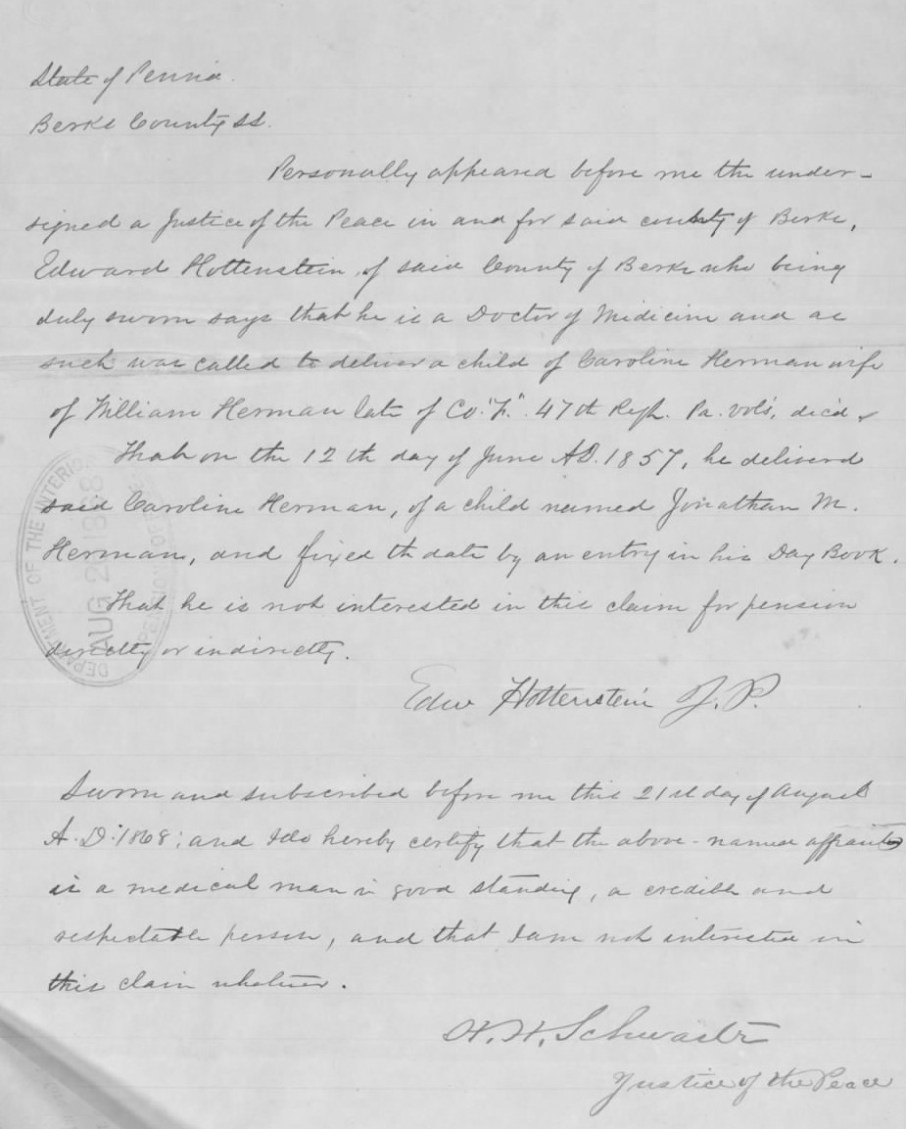 State of Penna.
Berks County ss.
Personally appeared before me the under-
signed a Justice of the Peace in and for said county of Berks,
Edward Hottenstein of said County of Berks who being
duly sworn says that he is a Doctor of Medicine and as
such was called to deliver a child of Caroline Herman wife
of William Herman late of Co. 47th Regt. Pa. vols, dec'd,
That on the 12th day of June A.D. 1857, he delivered
said Caroline Herman, of a child named Jonathan M.
Herman, and fixed th date by an entry in his Day Book.
That he is not interested in this claim for pension
directly or indirectly.
Edw Hottenstein J.P.
Sworn and subscribed before me this 21st day of August
A.D. 1868; and I do hereby certify that the above-named affiant
is a medical man in good standing, a credible and
respectable person, and that I am not interested in
this claim whatever.
H. H. Schwartz
Justice of the Peace
DEPARTMENT OF THE INTERIOR
AUG 26 1868
PENSION OFFICE